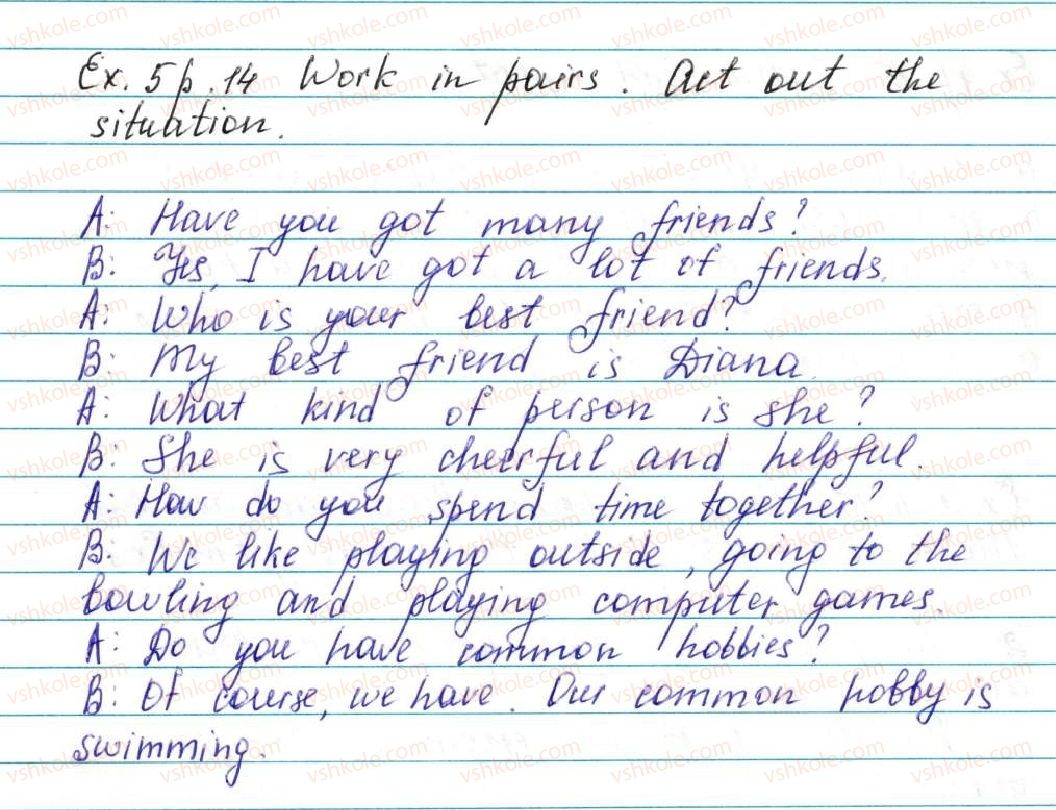 Ex. 5 p. 14 Work in pairs. Act out the
situation.
A: Have you got many friends?
B: Yes, I have got a lot of friends.
A: Who is your best friend?
B: My best friend is Diana.
A: What kind of person is she?
B: She is very cheerful and helpful.
A: How do you spend time together?
B: We like playing outside, going to the
bowling and playing computer games.
A: Do you have common hobbies?
B: Of course, we have. Our common hobby is
swimming.
vshkole.com